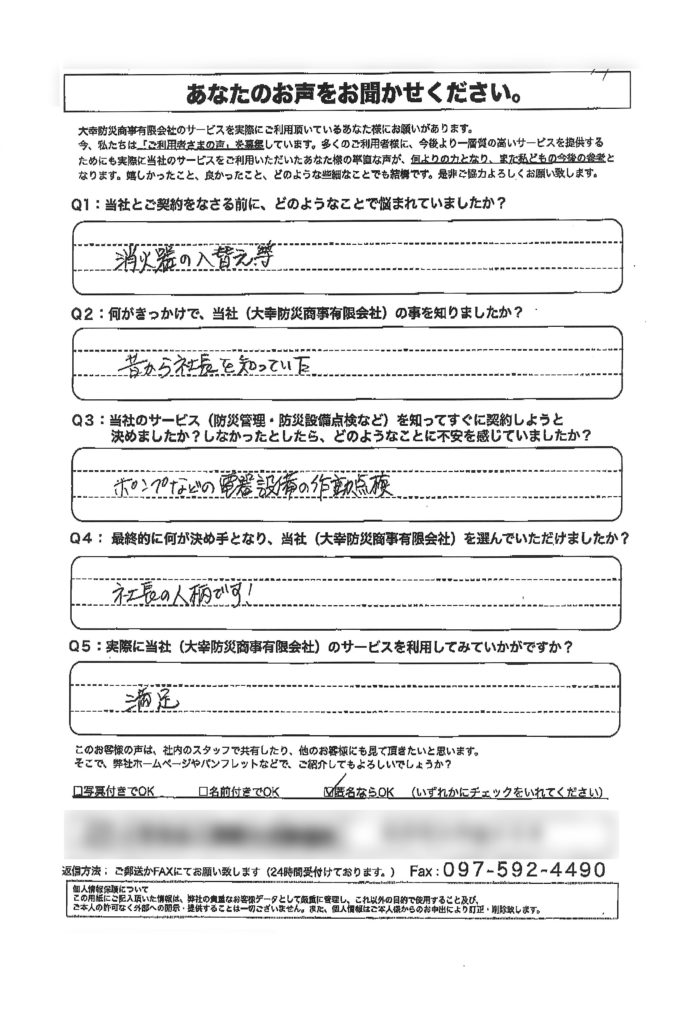 あなたのお声をお聞かせください。
大幸防災商事有限会社のサービスを実際にご利用頂いているあなた様にお願いがあります。
今、私たちは「ご利用者さまの声」を募集しています。多くのご利用者様に、今後より一層質の高いサービスを提供する
ためにも実際に当社のサービスをご利用いただいたあなた様の率直な声が、何よりの力となり、また私どもの今後の参考と
なります。嬉しかったこと、良かったこと、どのような些細なことでも結構です。是非ご協力よろしくお願い致します。
Q1：当社とご契約をなさる前に、どのようなことで悩まれていましたか？
消火器の入替え等
Q2：何がきっかけで、当社（大幸防災商事有限会社）の事を知りましたか？
昔から社長を知っていた
Q3：当社のサービス（防災管理・防災設備点検など）を知ってすぐに契約しようと
決めましたか？しなかったとしたら、どのようなことに不安を感じていましたか？
ポンプなどの電器設備の作動点検
Q4： 最終的に何が決め手となり、当社（大幸防災商事有限会社）を選んでいただけましたか？
社長の人柄です！
Q5：実際に当社（大幸防災商事有限会社）のサービスを利用してみていかがですか？
満足
このお客様の声は、社内のスタッフで共有したり、他のお客様にも見て頂きたいと思います。
そこで、弊社ホームページやパンフレットなどで、ご紹介してもよろしいでしょうか？
□写真付きでOK □名前付きでOK ☑匿名ならOK （いずれかにチェックをいれてください）
返信方法； ご郵送かFAXにてお願い致します（24時間受付けております。） Fax：097-592-4490
個人情報保護について
この用紙にご記入頂いた情報は、弊社の貴重なお客様データとして厳重に管理し、これ以外の目的で使用すること及び、
ご本人の許可なく外部への開示・提供することは一切ございません。また、個人情報はご本人様からのお申出により訂正・削除致します。